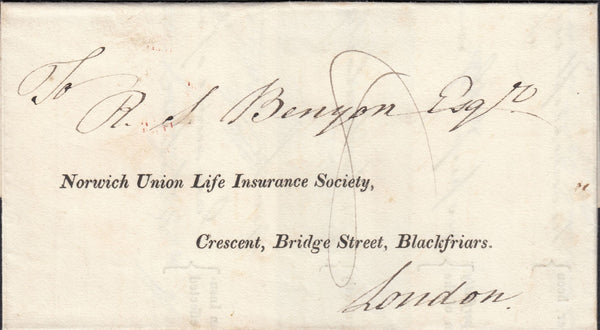 To
R. S Benyon Esqre
8
Norwich Union Life Insurance Society,
Crescent, Bridge Street, Blackfriars.
London.